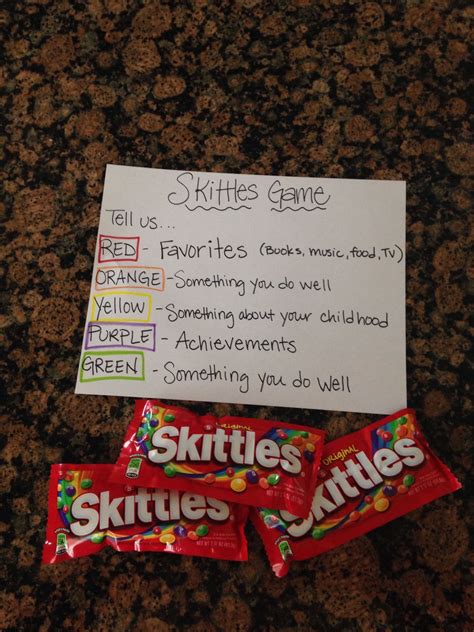 Skittles Game
Tell us...
RED - Favorites (Books, music, food, TV)
ORANGE - Something you do well
Yellow - Something about your childhood
PURPLE - Achievements
GREEN - Something you do well
ORIGINAL
Skittles
ORIGINAL
Skittles
Skittles